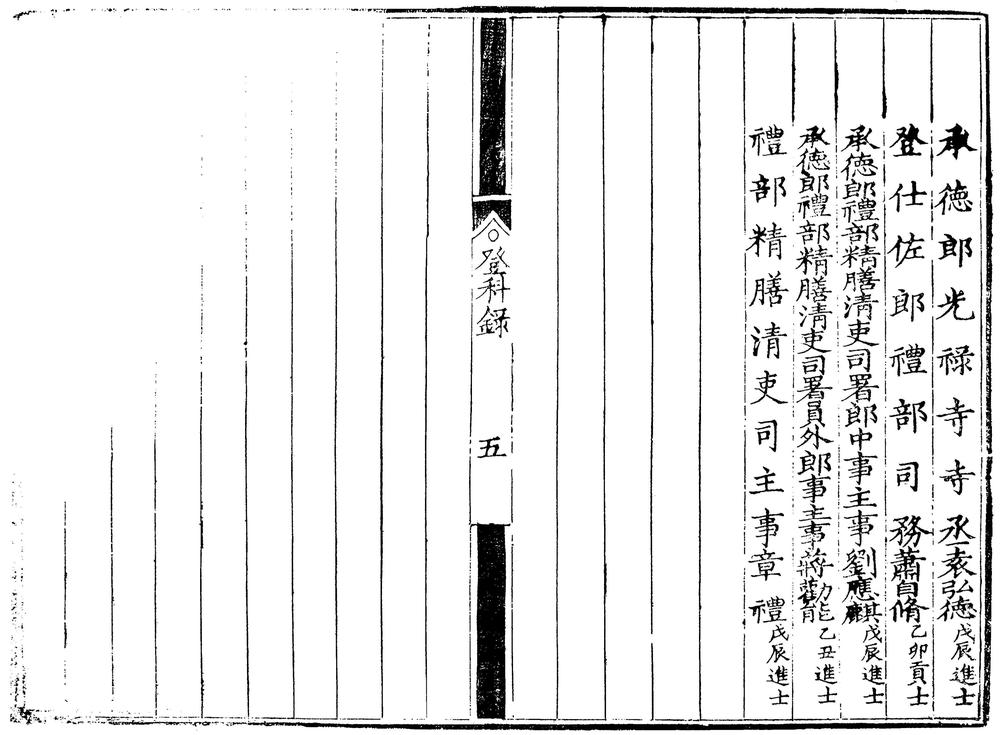 承德郎光祿寺寺丞袁弘德戊辰進士
登仕佐郎禮部司務蕭自脩乙卯貢士
承德郎禮部精膳清吏司署郎中事主事劉應麒戊辰進士
承德郎禮部精膳清吏司署員外郎事主事蔣勸能乙丑進士
禮部精膳清吏司主事章禮戊辰進士
登科錄
五